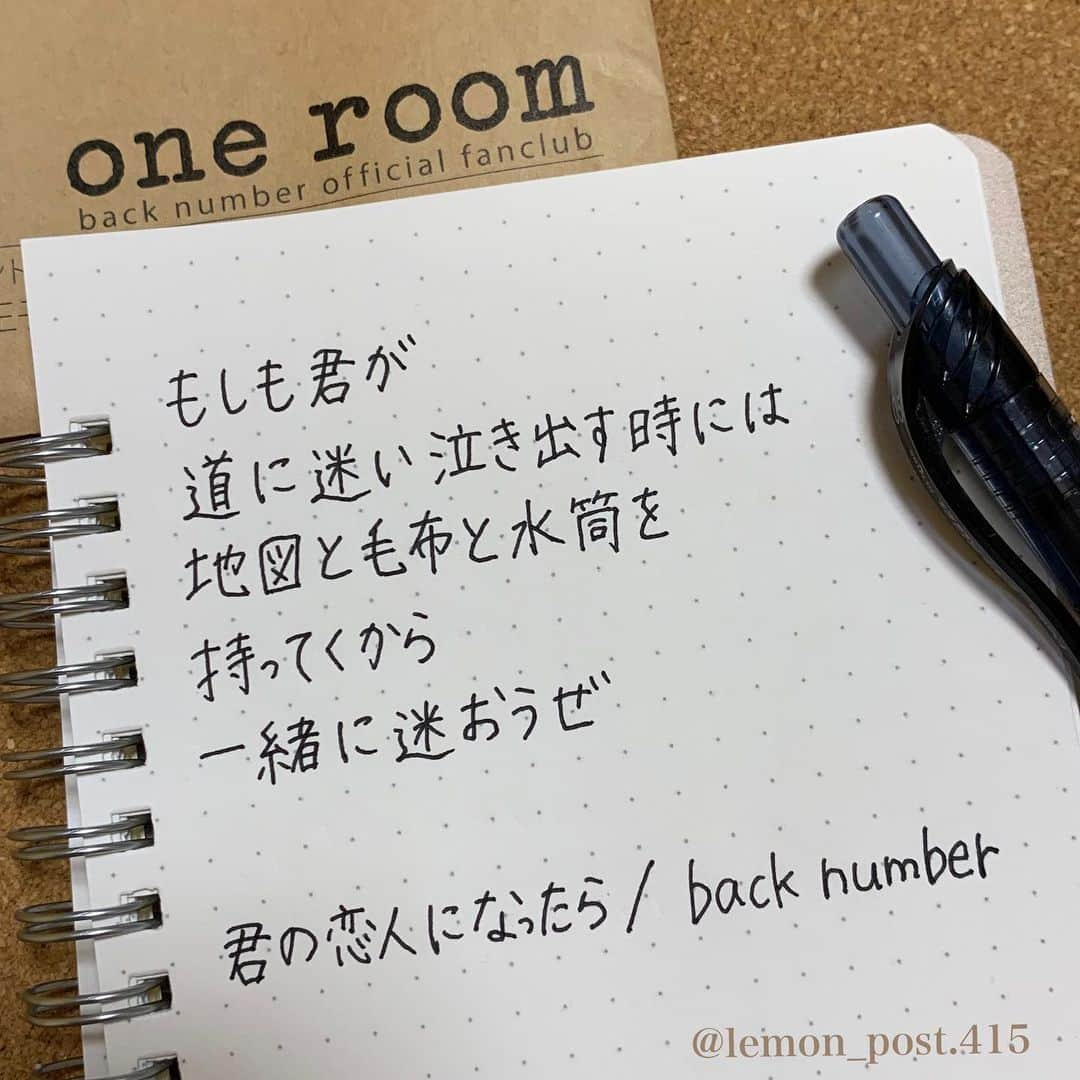 one room
back number official fanclub
もしも君が
道に迷い泣き出す時には
地図と毛布と水筒を
持ってくから
一緒に迷おうぜ
君の恋人になったら/back number
@lemon_post.415